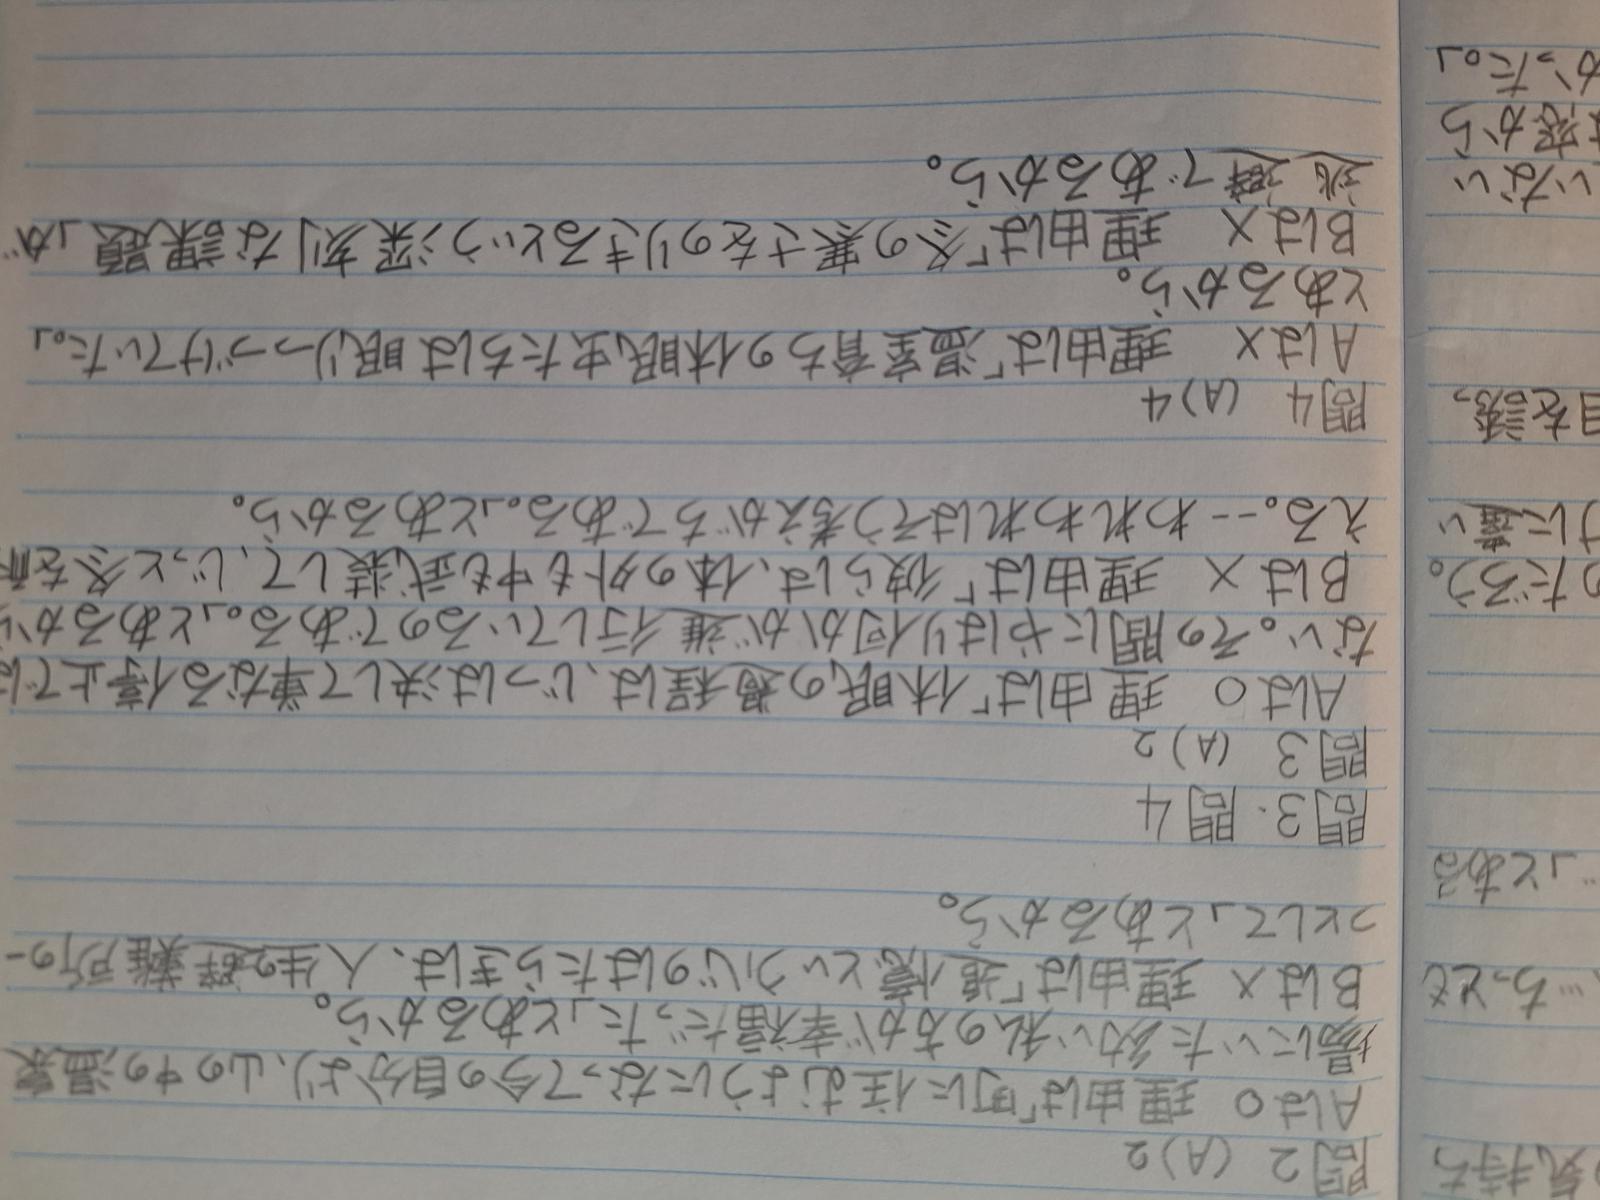 問2 (A)2
Aは○ 理由は「町に住むようになって今の自分より、山の中の温泉
場にいた幼い私の方が幸福だった」とあるから。
Bは× 理由は「追憶という心のはたらきは、人生の避難所の一
つとして」とあるから。
問3・問4
問3 (A)2
Aは○ 理由は「休眠の過程は、じつは決して単なる停止では
ない。その間にやはり何かが進行しているのである。」とあるから
Bは× 理由は「彼らは、体の外も中も武装して、じっと冬を耐
える。…われわれはそう考えがちである。」とあるから。
問4 (A)4
Aは× 理由は「温室育ちの休眠虫たちは眠りつづけていた。」
とあるから。
Bは× 理由は「冬の寒さをのりきるという深刻な課題」が
逃避であるから。
気持ち
…ちっとも
…」とある
のだろう。
けに違い
目を誘っ
いない
は窓から
かった。」